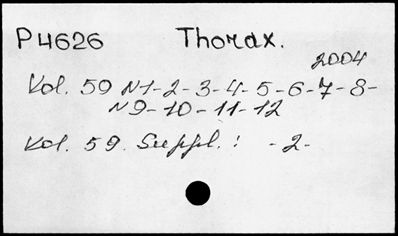 P4626 Thorax.
2004
Vol. 59 N1-2-3-4-5-6-7-8-
N9-10-11-12
Vol. 59. Suppl.: -2-